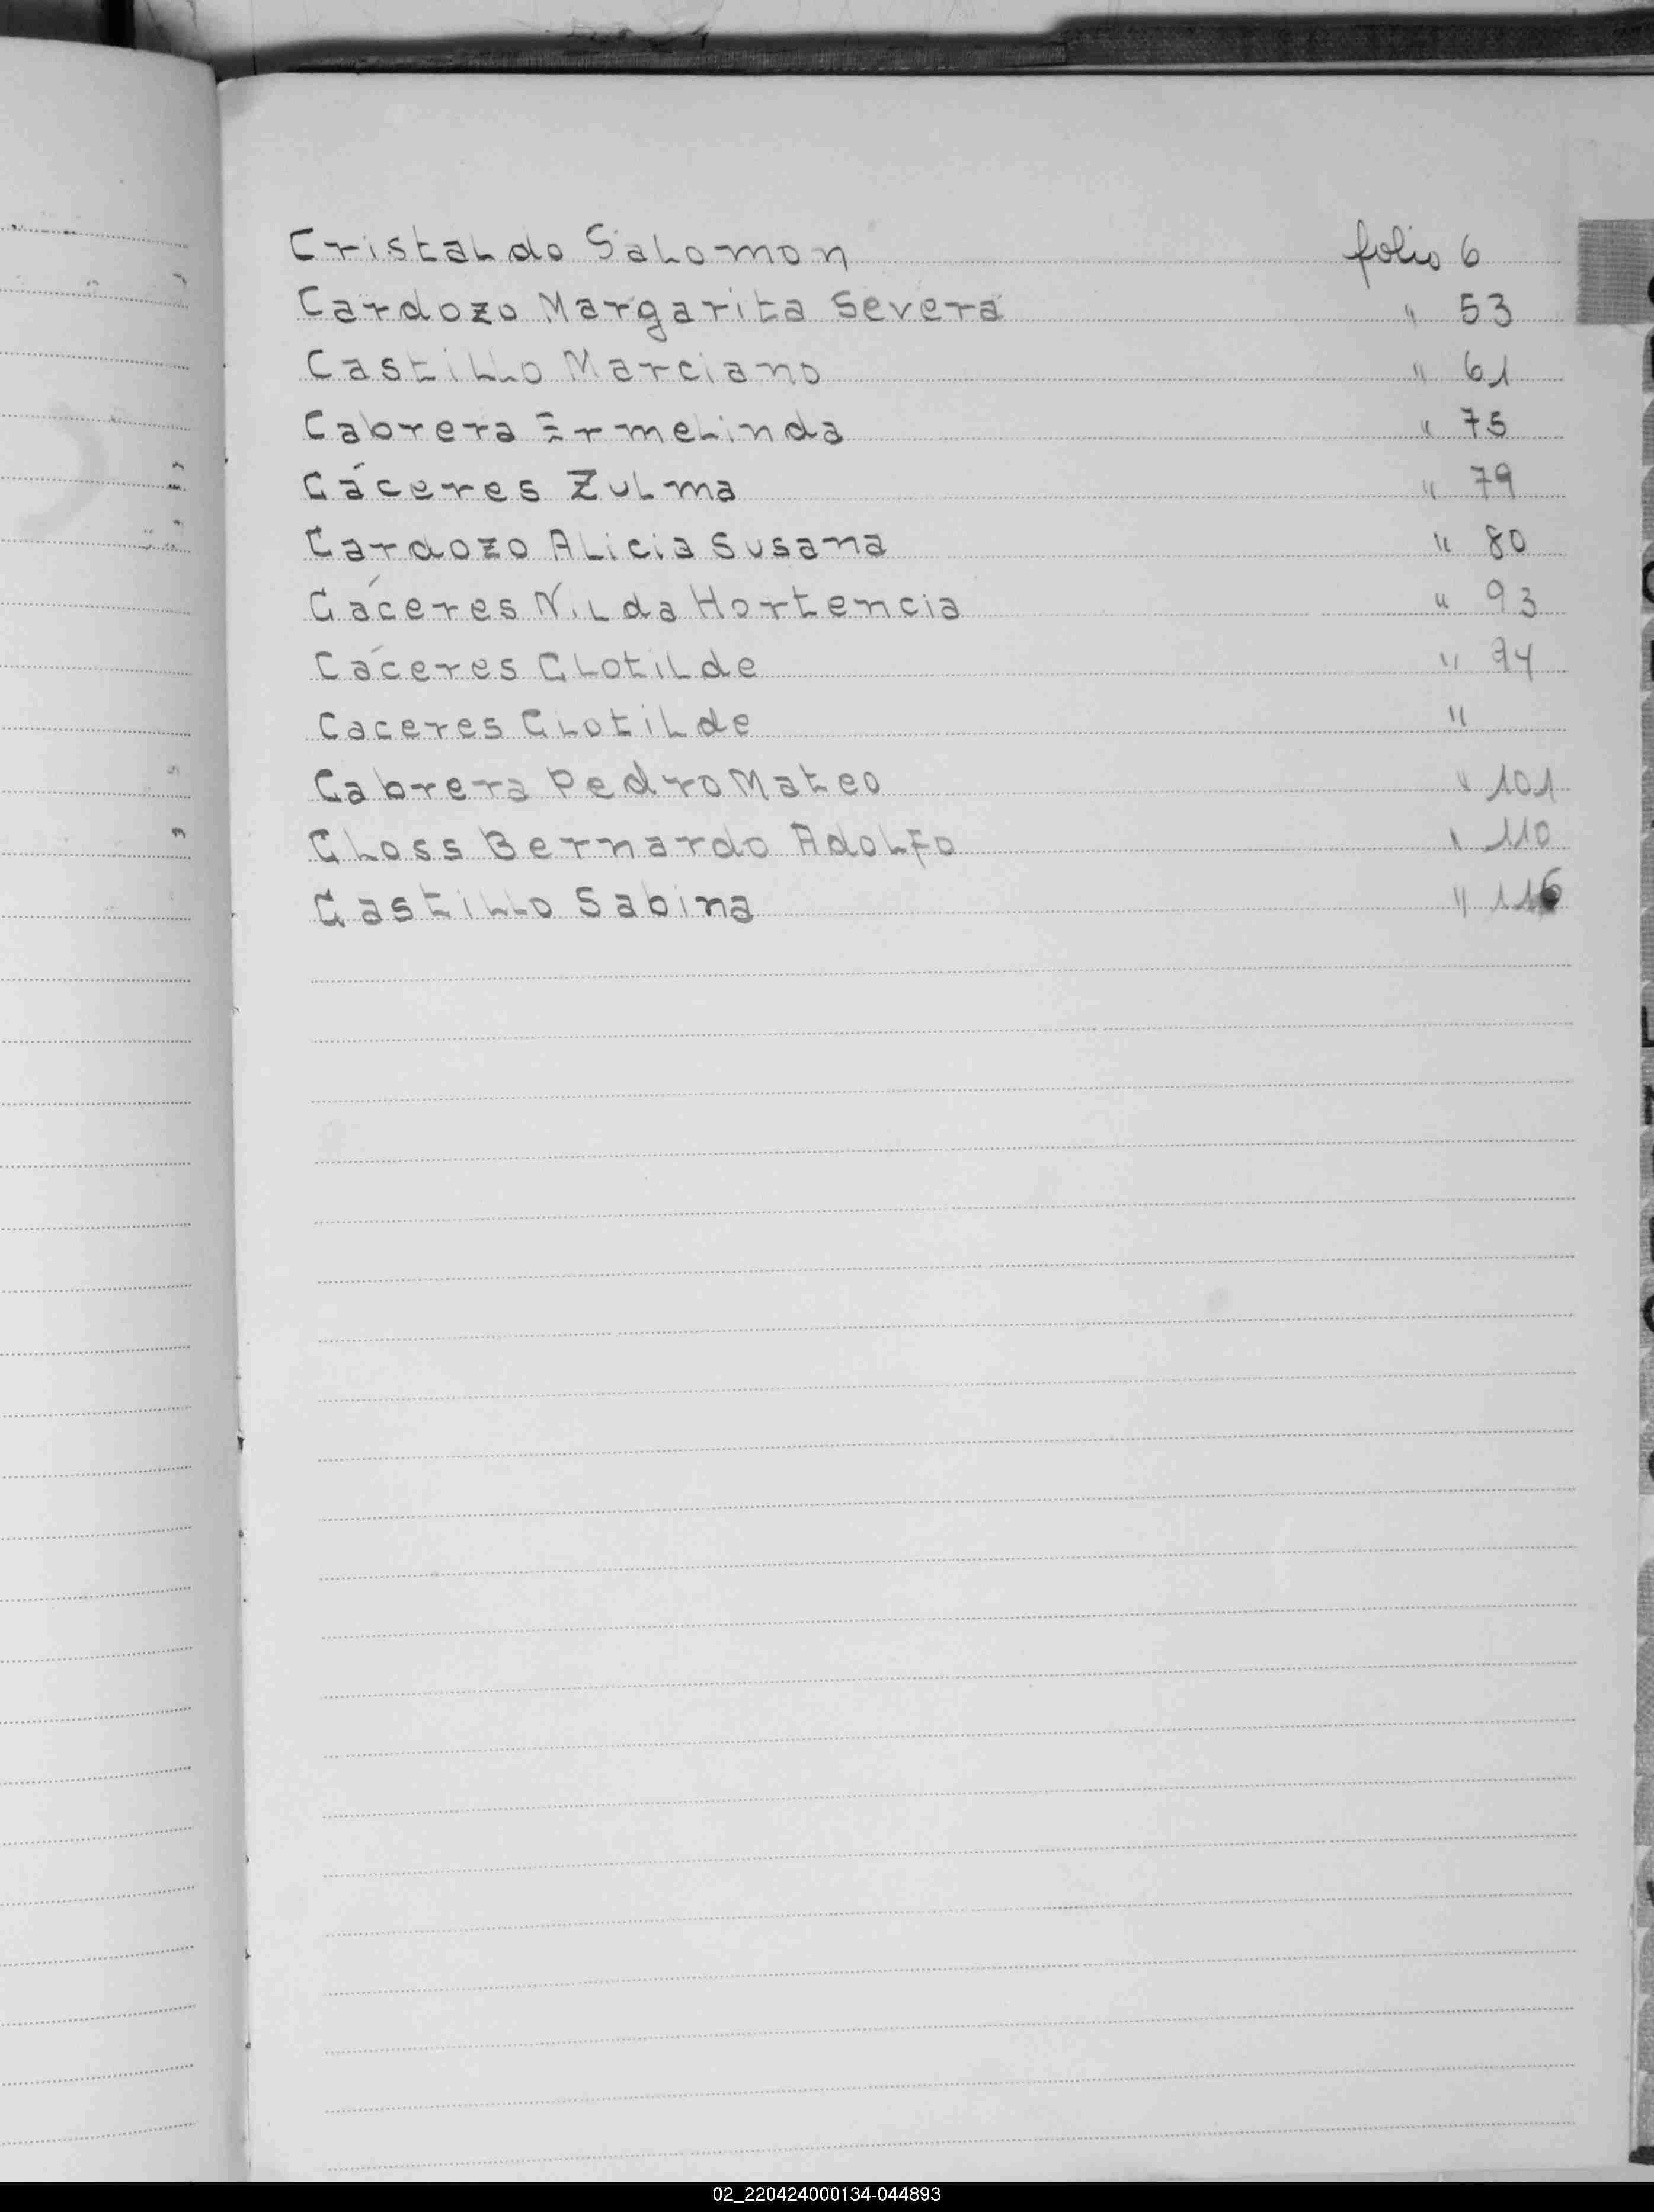 Cristaldo Salomon folio 6
Cardozo Margarita Severa " 53
Castillo Marciano " 61
Cabrera Ermelinda " 75
Cáceres Zulma " 79
Cardozo Alicia Susana " 80
Cáceres Nilda Hortencia " 93
Cáceres Clotilde " 94
Caceres Clotilde "
Cabrera Pedro Mateo " 101
Closs Bernardo Adolfo " 110
Castillo Sabina " 116
02_220424000134-044893